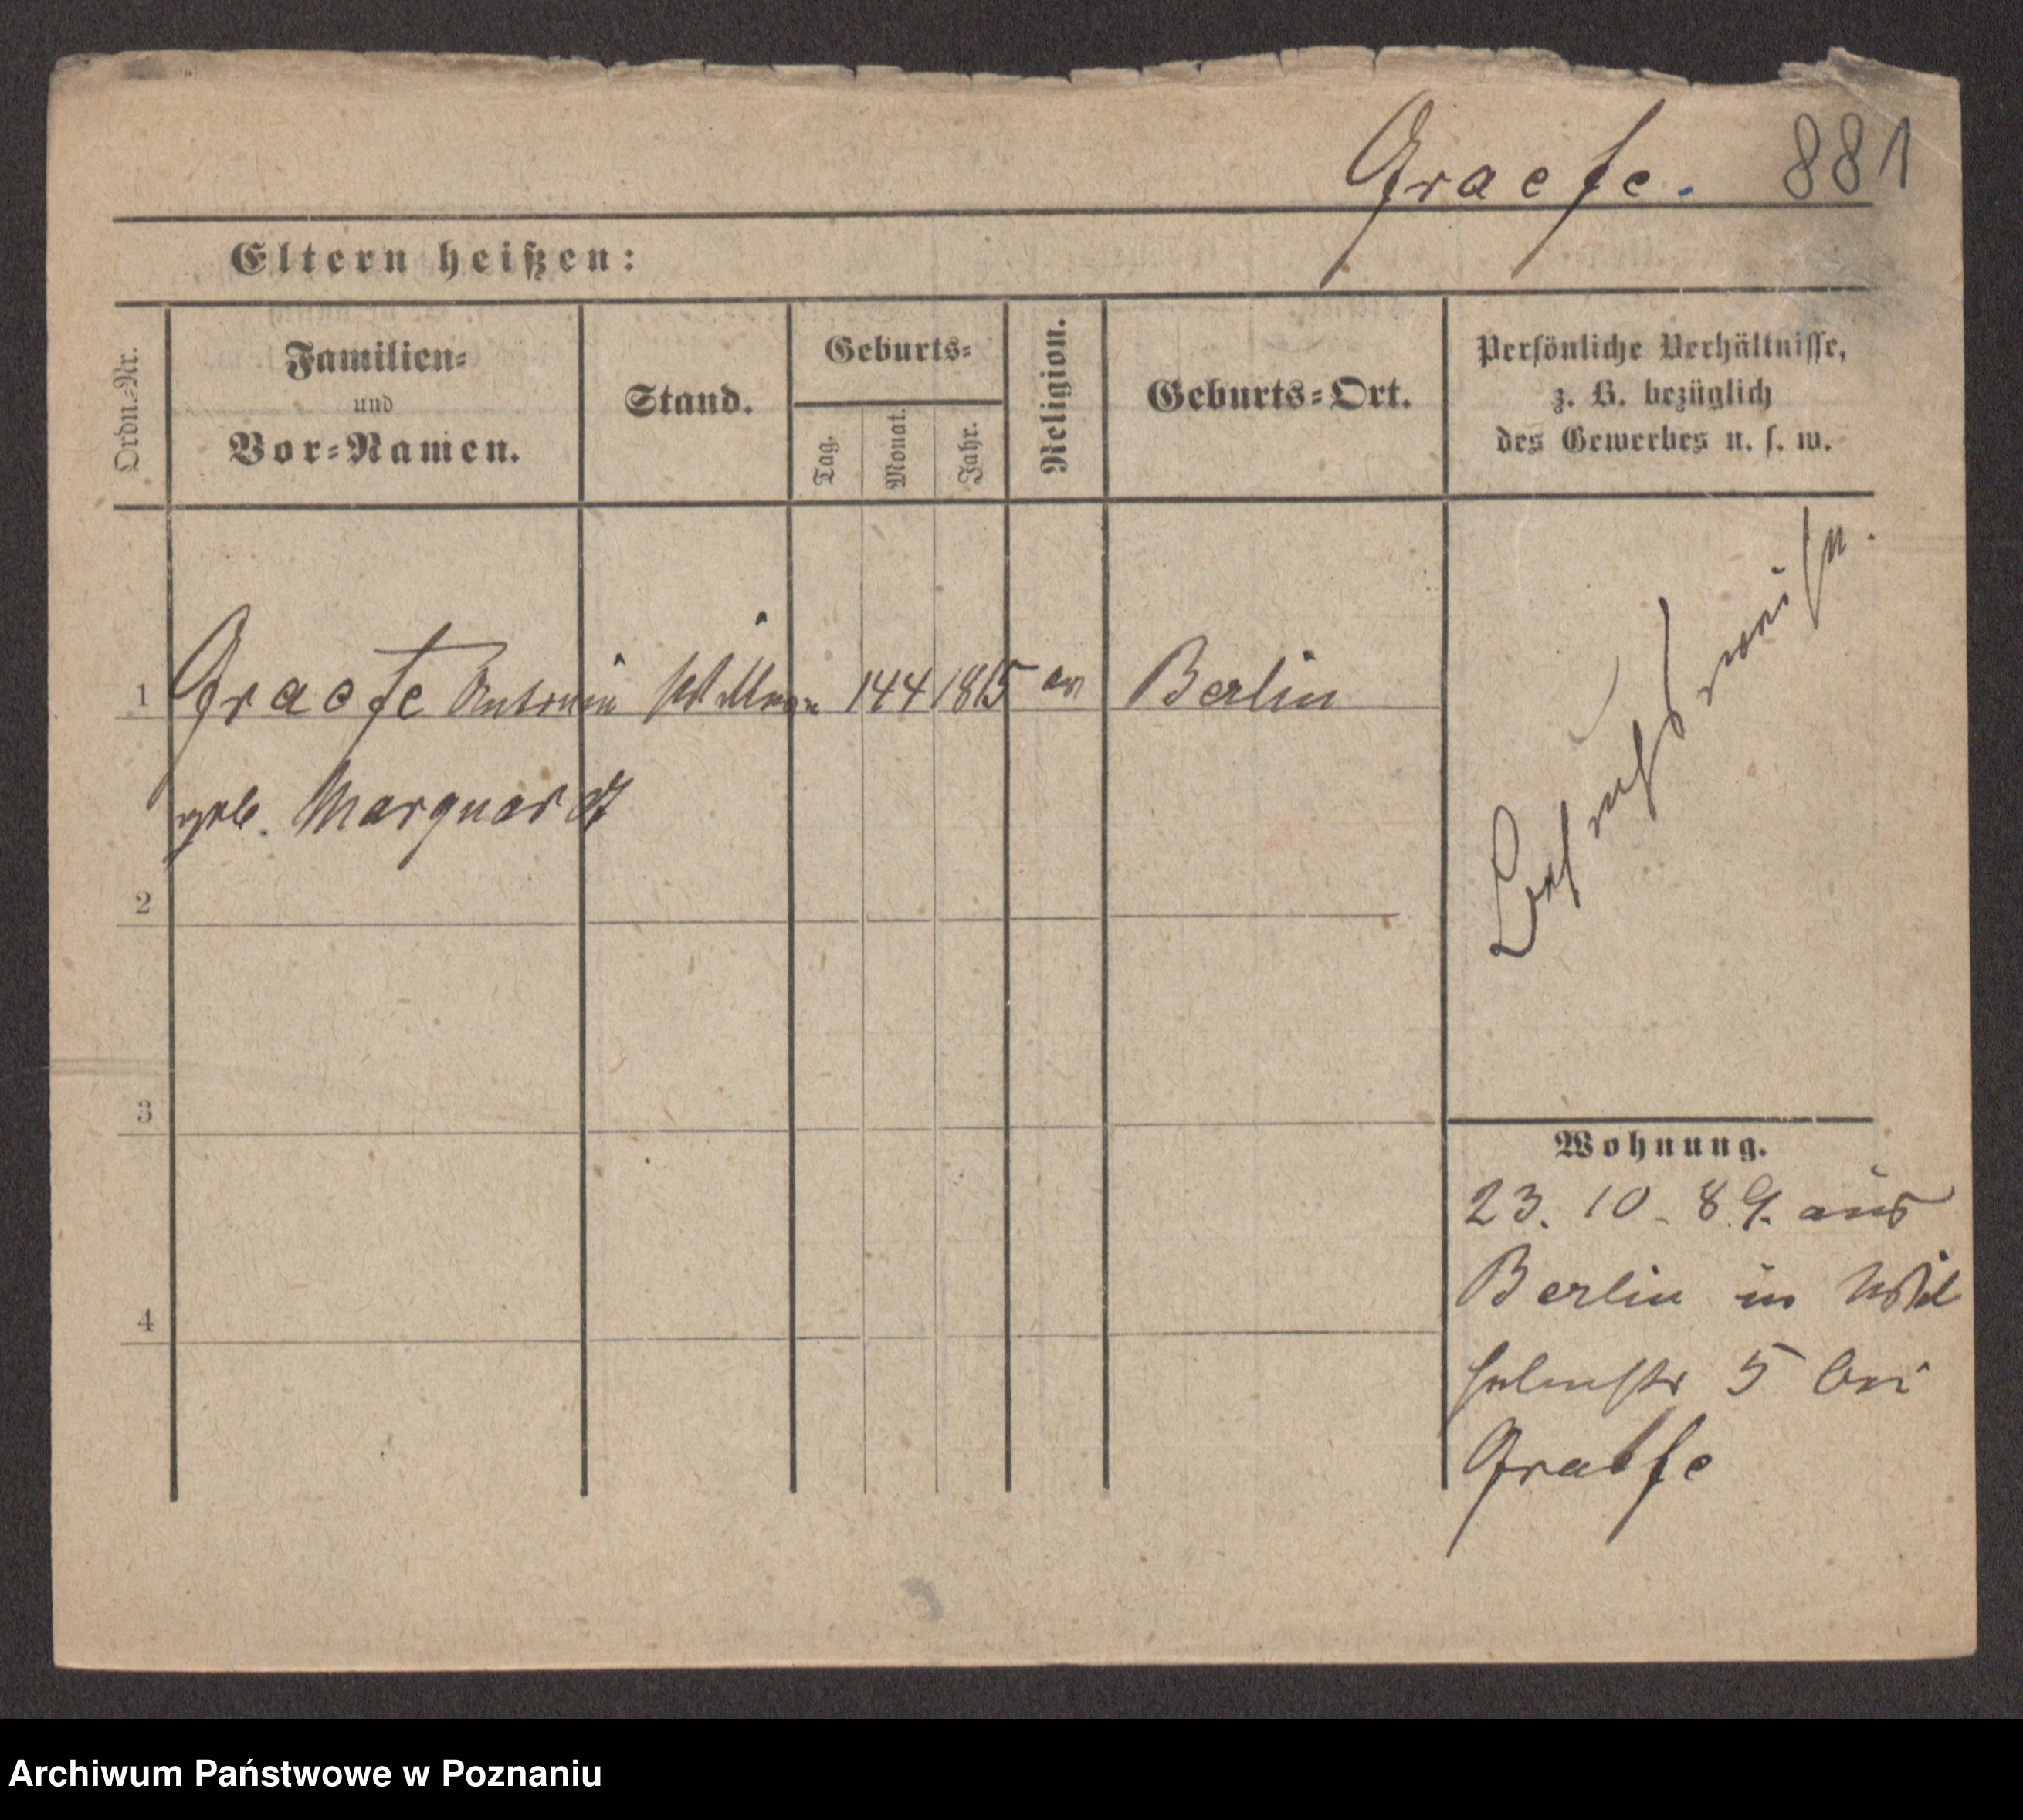 Graefe. 881
Eltern heißen:
Ordn.=Nr.
Familien=
und
Vor=Namen.
Stand.
Geburts=
Tag.
Monat.
Jahr.
Religion.
Geburts=Ort.
Persönliche Verhältnisse,
z. B. bezüglich
des Gewerbes u. s. w.
1 Graefe Antonie 14 4 1815 ev Berlin
geb. Marquardt
2
3
4
Wohnung.
23. 10. 89. aus
Berlin in Wil
helmstr 5 bei
Graefe
Archiwum Państwowe w Poznaniu